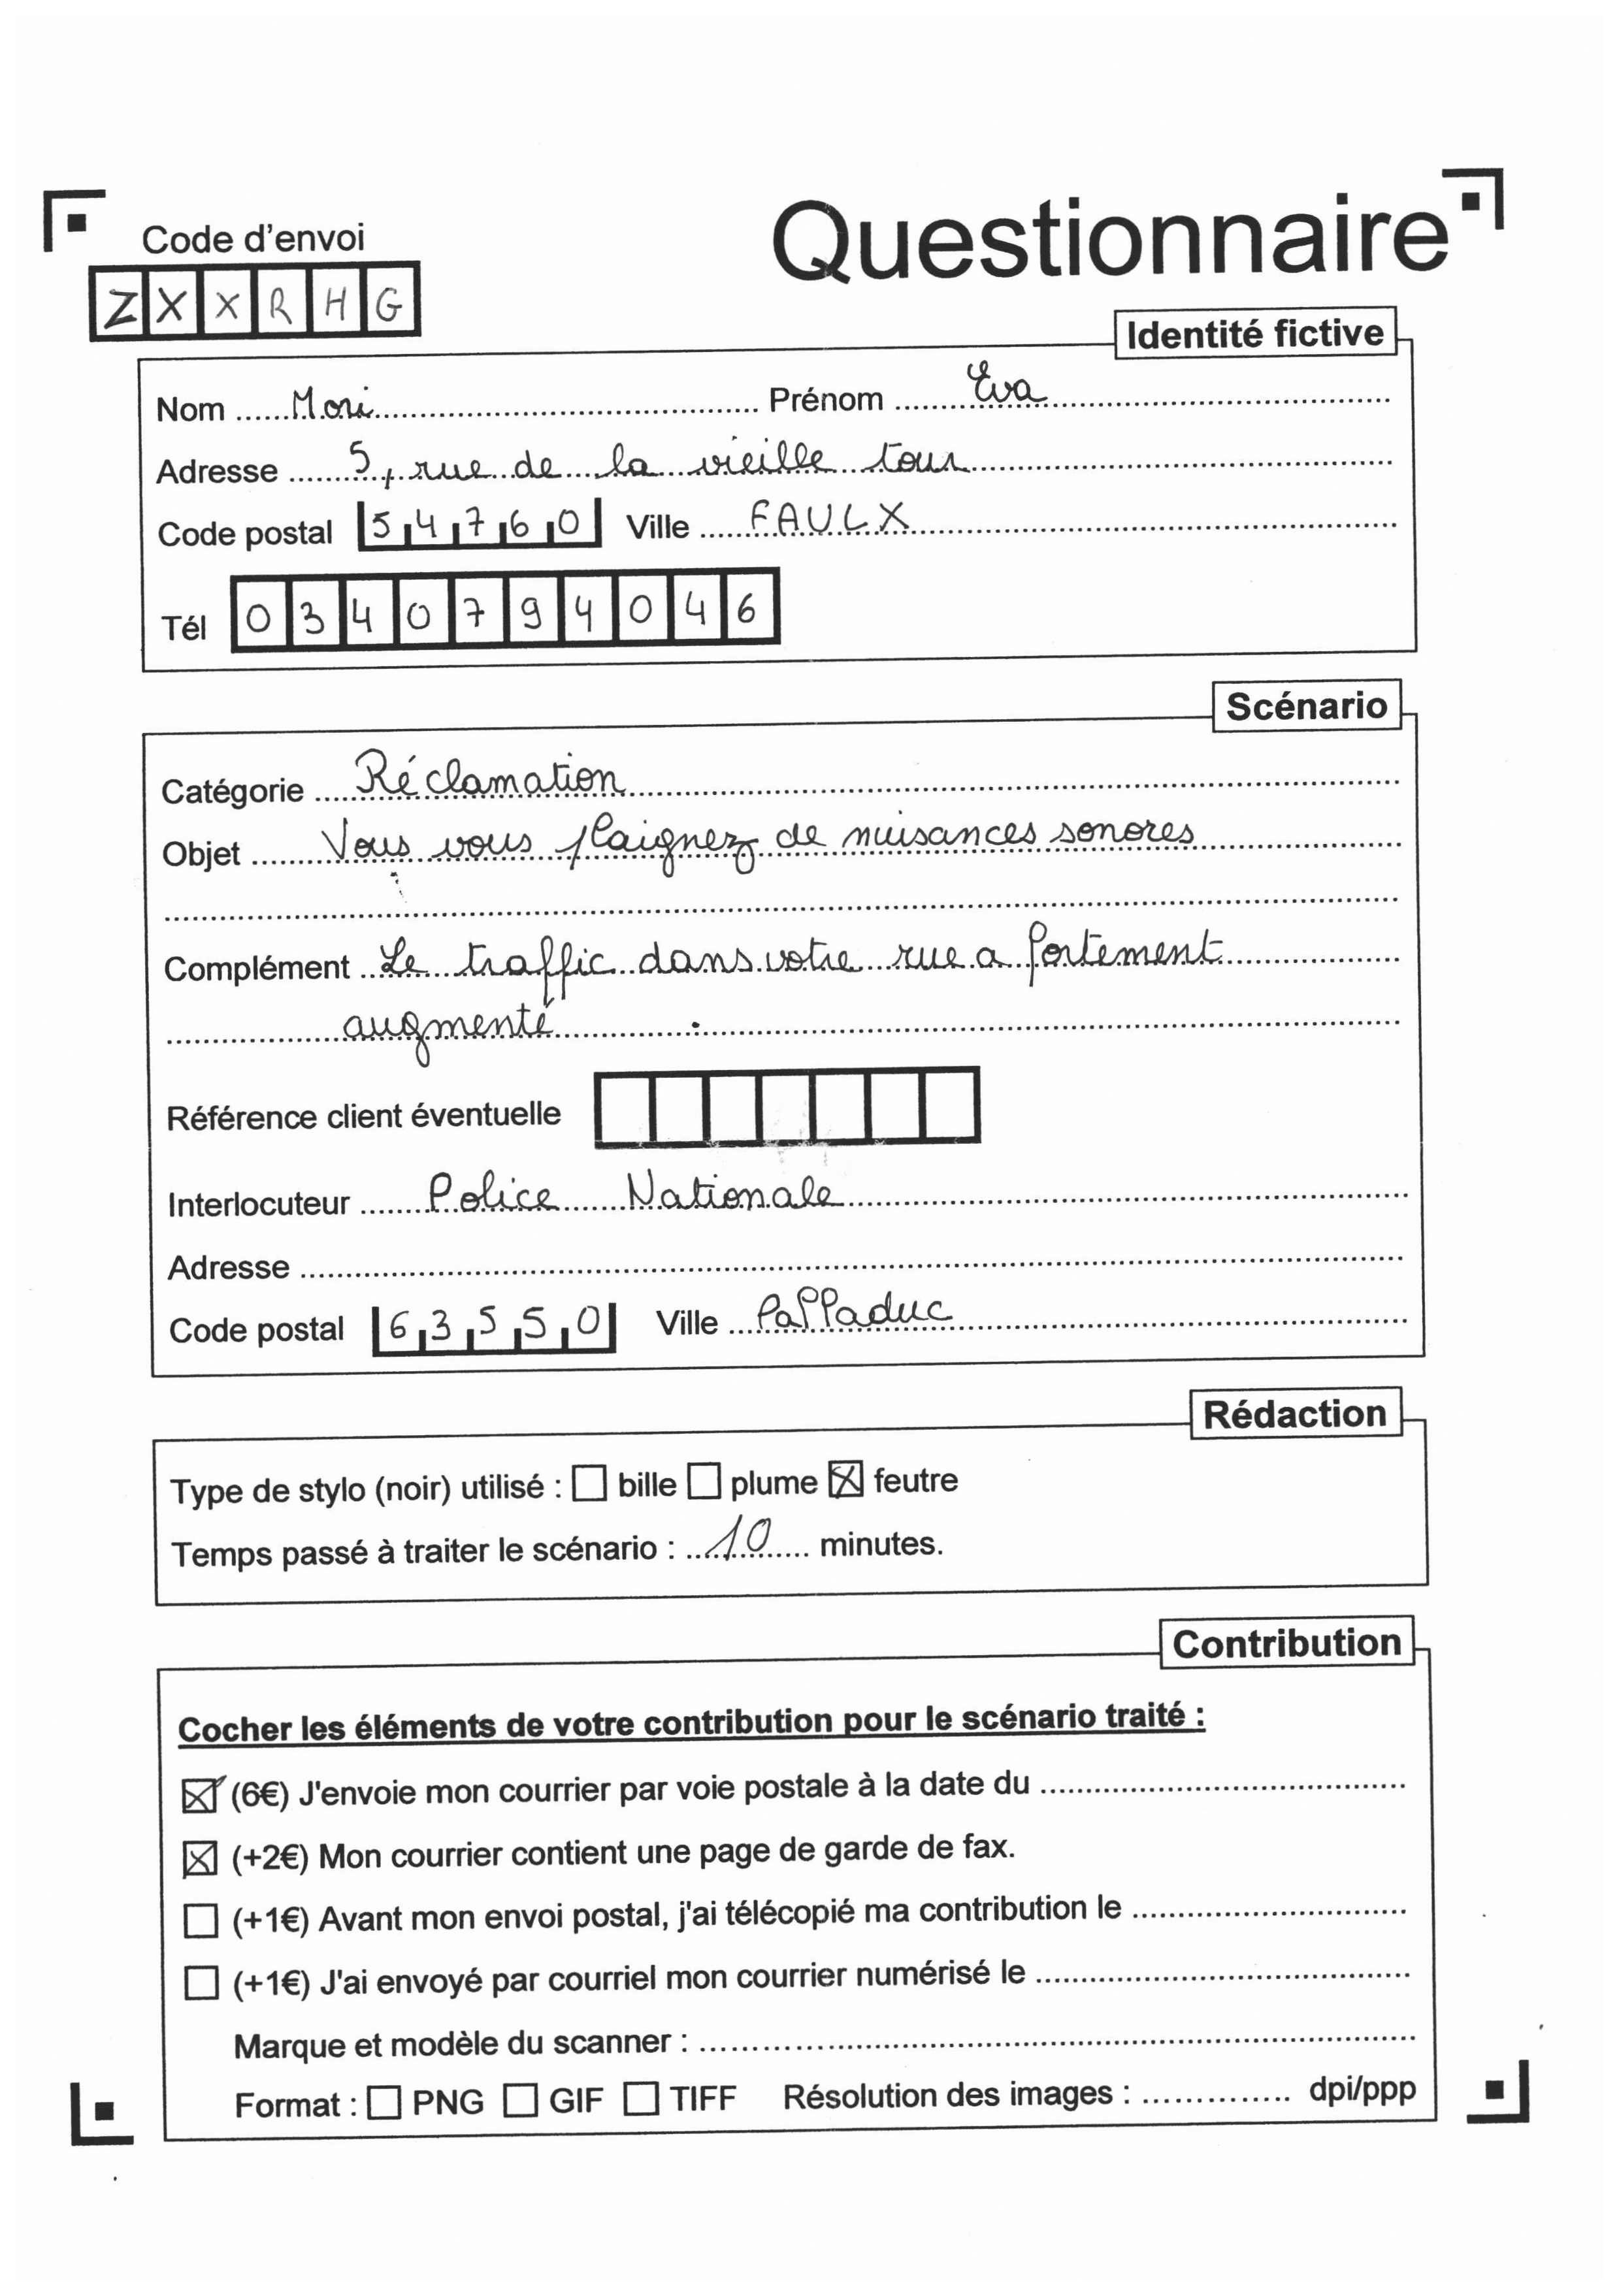 Questionnaire
Code d'envoi
ZXXRHG
Identité fictive
Nom ...... Mori ...... Prénom ...... Eva ......
Adresse ...... 5, rue de la vieille tour ......
Code postal 54760 Ville ...... FAULX ......
Tél 0340794046
Scénario
Catégorie ...... Réclamation ......
Objet ...... Vous vous plaignez de nuisances sonores ......
Complément ... Le traffic dans votre rue a fortement ......
...... augmenté ......
Référence client éventuelle
Interlocuteur ...... Police Nationale ......
Adresse ......
Code postal 63550 Ville ...... PalPaduc ......
Rédaction
Type de stylo (noir) utilisé : ☐ bille ☐ plume ☒ feutre
Temps passé à traiter le scénario : ...... 10 ...... minutes.
Contribution
Cocher les éléments de votre contribution pour le scénario traité :
☒ (6€) J'envoie mon courrier par voie postale à la date du ......
☒ (+2€) Mon courrier contient une page de garde de fax.
☐ (+1€) Avant mon envoi postal, j'ai télécopié ma contribution le ......
☐ (+1€) J'ai envoyé par courriel mon courrier numérisé le ......
Marque et modèle du scanner : ......
Format : ☐ PNG ☐ GIF ☐ TIFF Résolution des images : ...... dpi/ppp